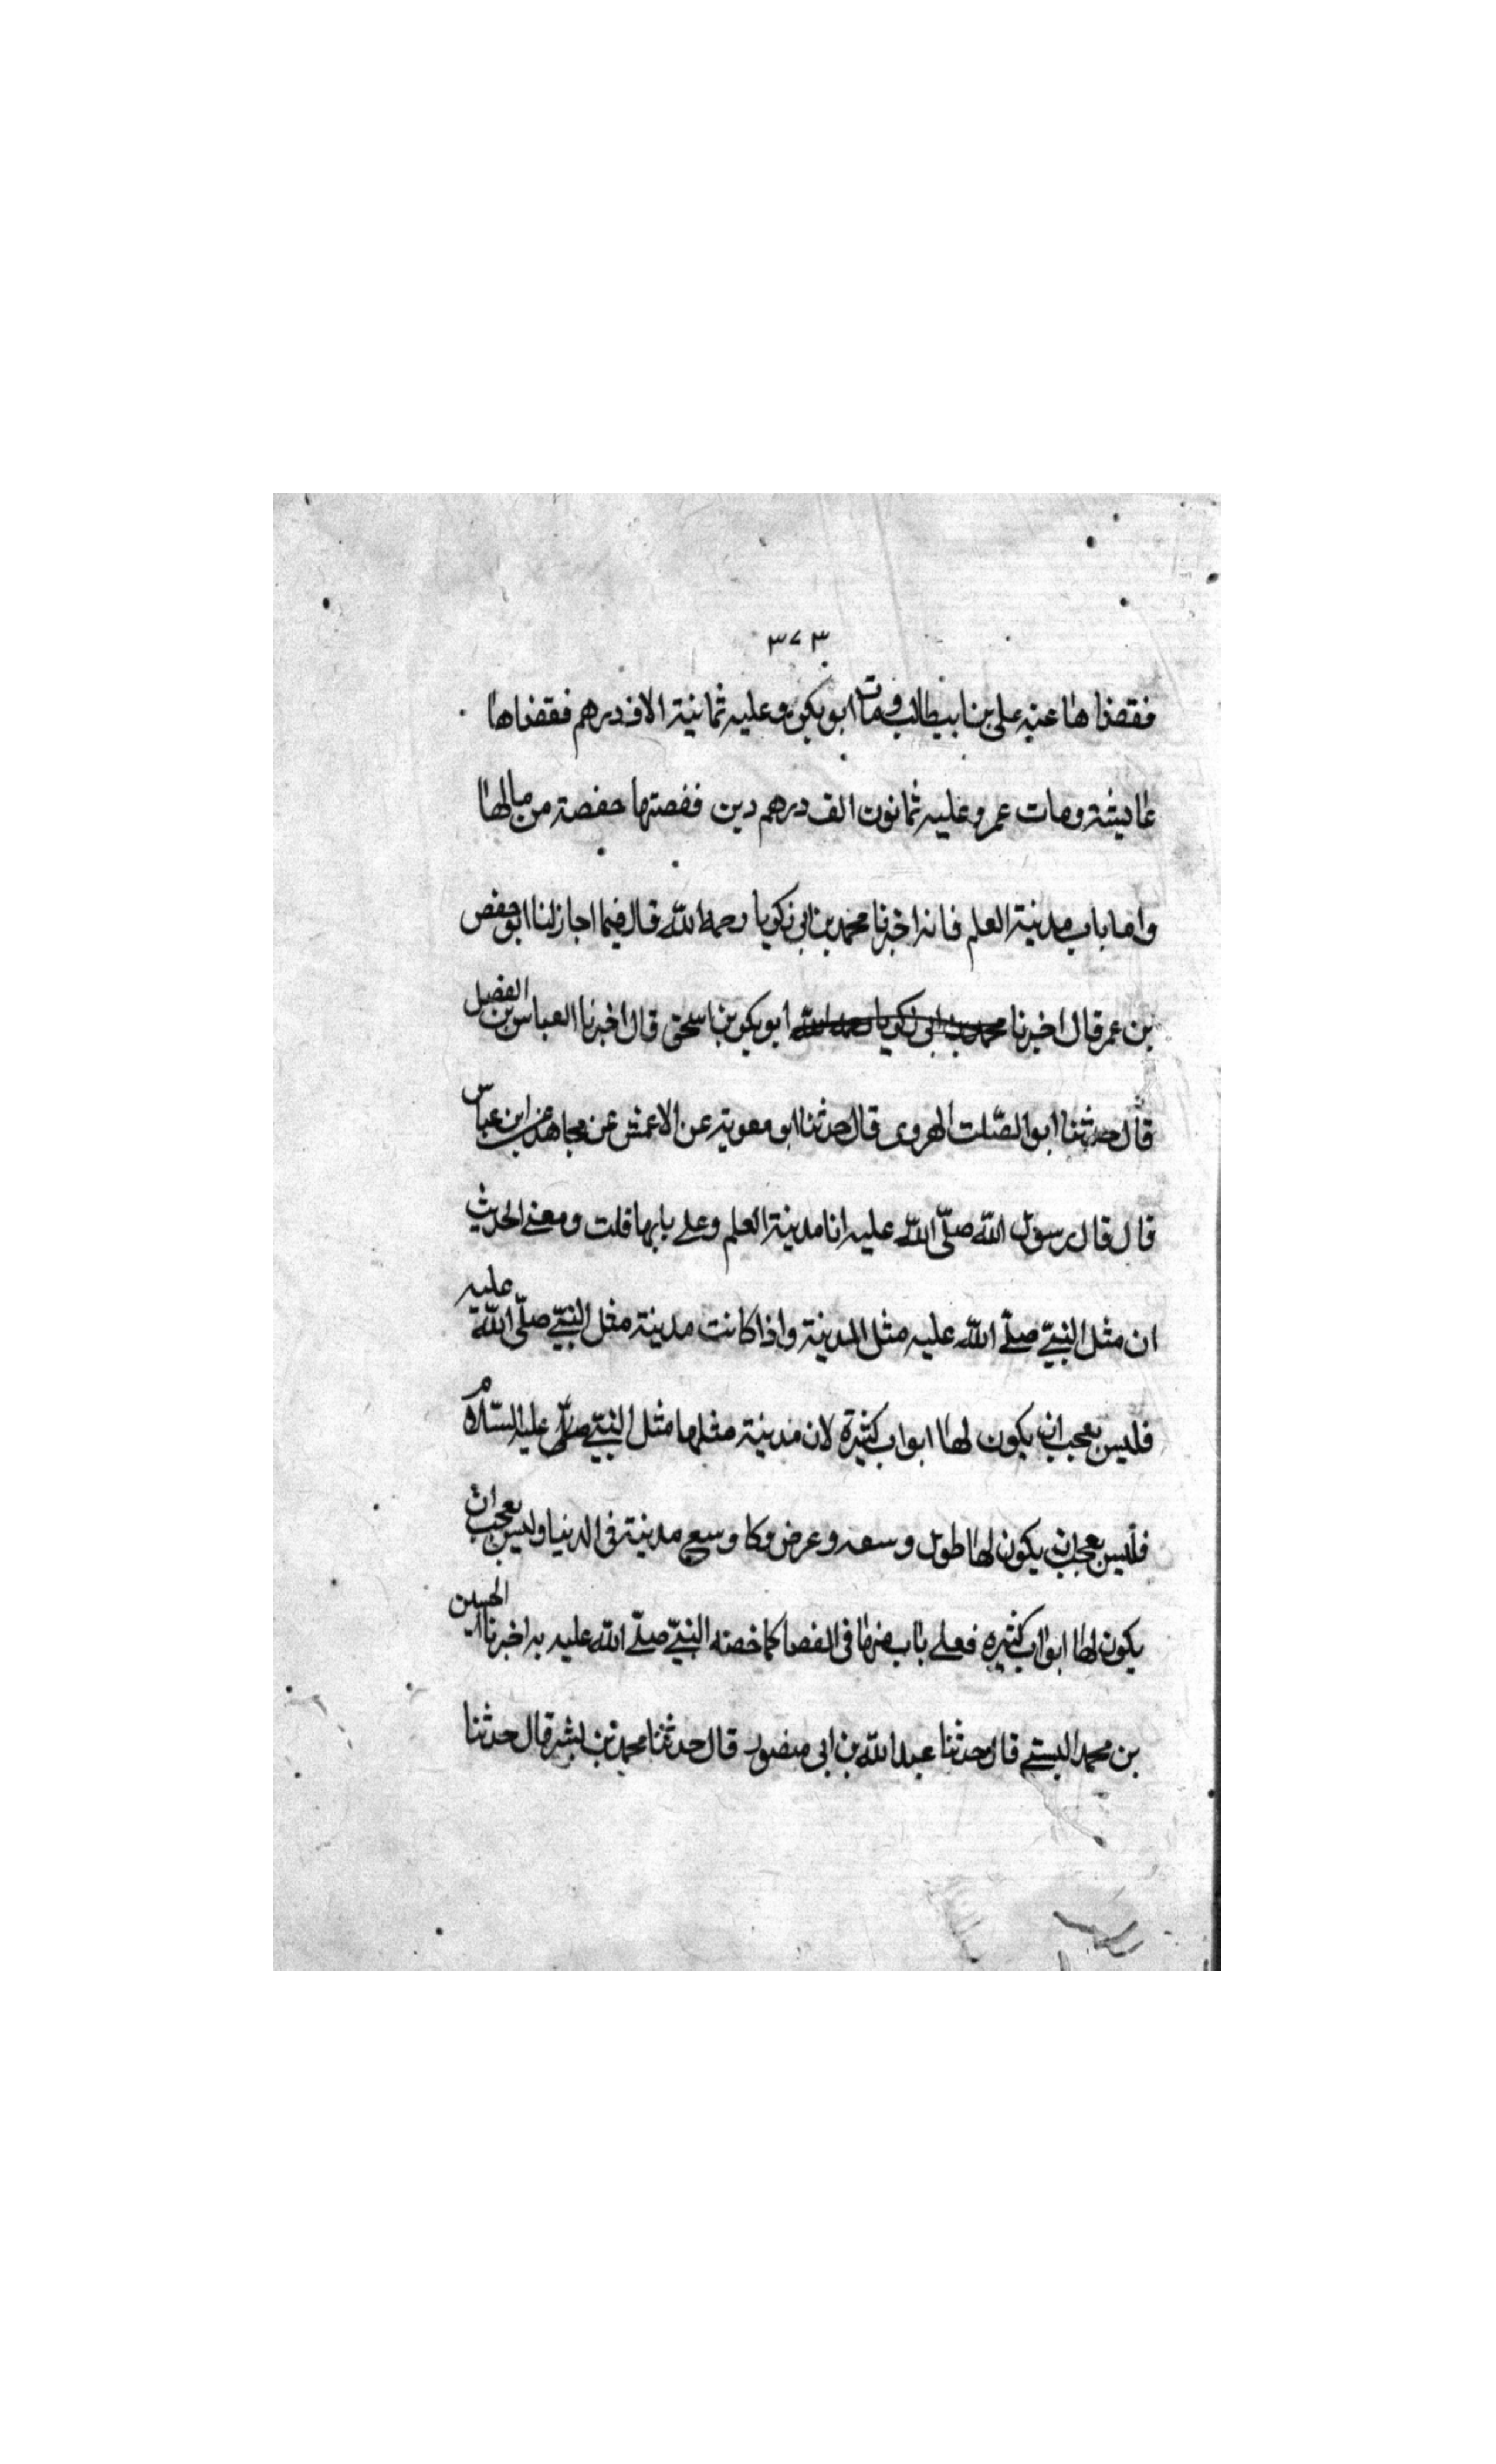 ٣٧٣
فقضاها عنه على بن ابيطالب ومات ابو بكر وعليه ثمانية الاف درهم فقضاها
عايشة ومات عمر وعليه ثمانون الف درهم دين فقصتها حفصة من مالها
واما باب مدينة العلم فانه اخبرنا محمد بن ابى زكريا رحمه الله قال فيما اجاز لنا ابو حفص
بن عمر قال اخبرنا محمد بن ابى زكريا رحمه الله ابو بكر بن اسحق قال اخبرنا العباس بن الفضل
قال حدثنا ابو الصّلت الهروى قال حدثنا ابو معوية عن الاعمش عن مجاهد عن ابن عباس
قال قال رسول الله صلّى الله عليه انا مدينة العلم وعلى بابها قلت ومعنى الحديث
ان مثل النبىّ صلّى الله عليه مثل المدينة واذا كانت مدينة مثل النبىّ صلّى الله عليه
فليس بعجب ان يكون لها ابواب كثيرة لان مدينة مثلها مثل النبىّ عليه السّلام
فليس بعجب ان يكون لها طول وسعه وعرض وكا وسع مدينة فى الدنيا وليس بعجب ان
يكون لها ابواب كثيره فعلى باب منها فى القضا كما خصه النبىّ صلّى الله عليه به اخبرنا الحسين
بن محمد البستى قال حدثنا عبد الله بن ابى منصور قال حدثنا محمد بن بشر قال حدثنا